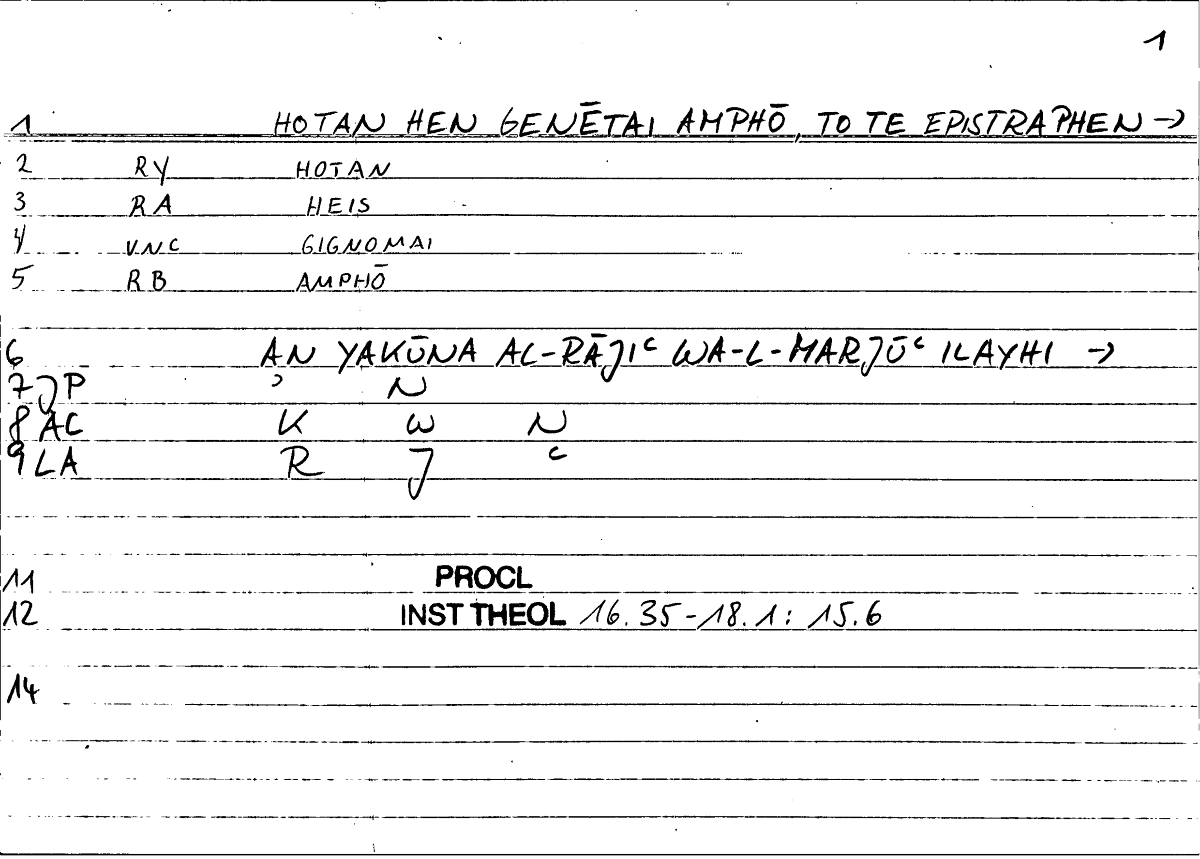 1
1 HOTAN HEN GENĒTAI AMPHŌ, TO TE EPISTRAPHEN →
2 RY HOTAN
3 RA HEIS
4 VNC GIGNOMAI
5 RB AMPHŌ
6 AN YAKŪNA AL-RĀJIʿ WA-L-MARJŪʿ ILAYHI →
7 JP ʾ N
8 AC K W N
9 LA R J ʿ
11 PROCL
12 INST THEOL 16.35-18.1: 15.6
14